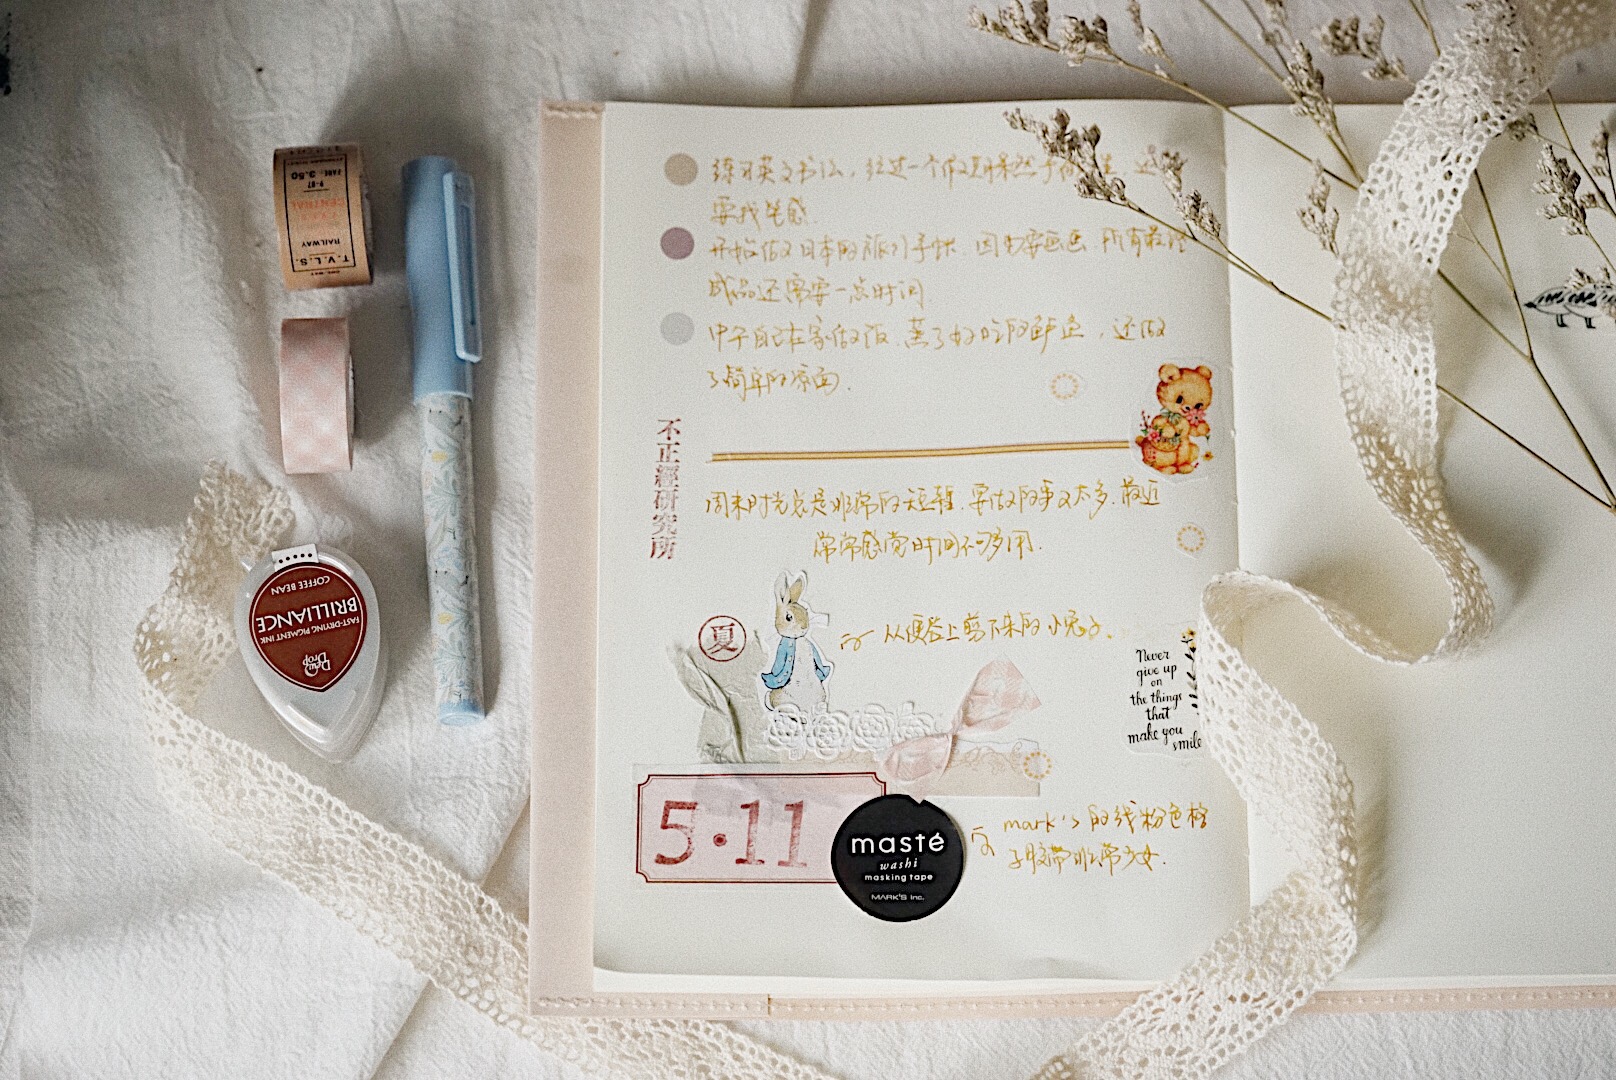 练习英文书法，经过一个假期果然手
要找笔感.
开始做日本的旅行手帐. 因为要画画. 所有最终
成品还需要一点时间
中午自己在家做饭. 蒸了好吃的鲈鱼，还做
了简单的凉面.
不正經研究所
周末时光总是非常的短暂. 要做的事又太多. 最近
常常感觉时间不够用.
夏
从便签上剪下来的小兔子.
Never
give up
on
the things
that
make you
smile
5·11
masté
washi
masking tape
MARK'S Inc.
mark's 的线粉色格
子胶带非常少女.
FARE: 3.50
CENTRAL
RAILWAY
T.V.L.S.
COFFEE BEAN
BRILLIANCE
FAST-DRYING PIGMENT INK
Dew
Drop